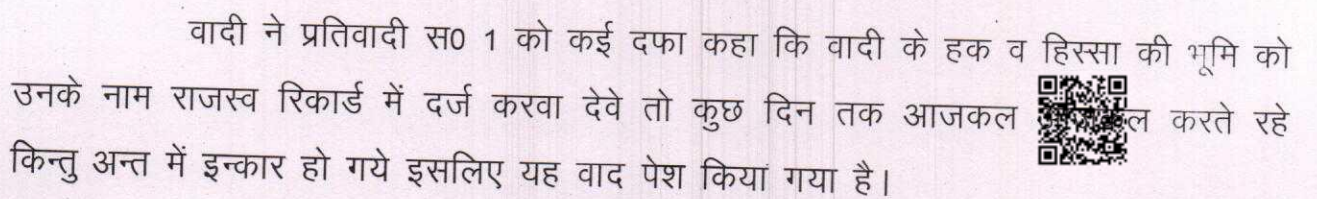 वादी ने प्रतिवादी स0 1 को कई दफा कहा कि वादी के हक व हिस्सा की भूमि को
उनके नाम राजस्व रिकार्ड में दर्ज करवा देवे तो कुछ दिन तक आजकल करते रहे
किन्तु अन्त में इन्कार हो गये इसलिए यह वाद पेश किया गया है।